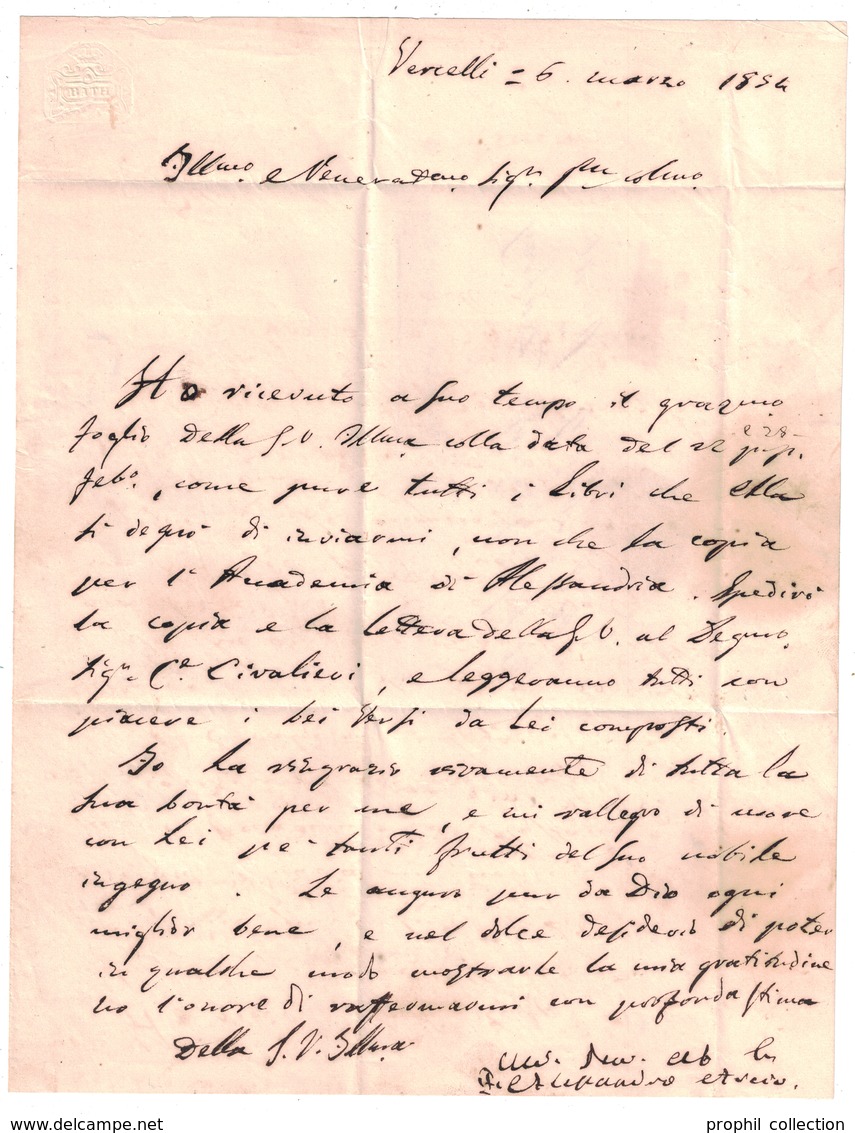 BATH
Vercelli = 6. marzo 1854
Illmo. e Veneratmo. Sigr. colmo.
Ho ricevuto a suo tempo il grazmo
foglio della S.V. Illma. colla data del 22 e 28
febo., come pure tutti i Libri che ella
si degnò di inviarmi, non che la copia
per l'Accademia di Alessandria. Spedirò
la copia e la lettera della S.V. al Degmo.
Sigr. Ce. Civalieri, e leggeranno tutti con
piacere i bei versi da Lei composti.
Io La ringrazio vivamente di tutta la
sua bontà per me, e mi rallegro di nuovo
con Lei pe' tanti frutti del suo nobile
ingegno. Le auguro pur da Dio ogni
miglior bene, e nel dolce desiderio di poter
in qualche modo mostrarle la mia gratitudine
ho l'onore di raffermarmi con profonda stima
Della S.V. Illma.
prophil collection
www.delcampe.net